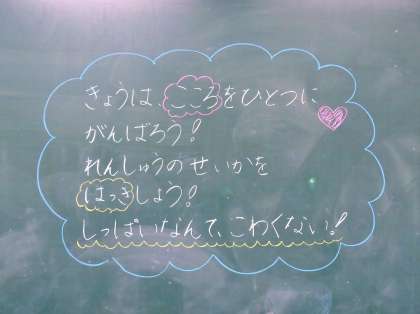 きょうは、こころをひとつに
がんばろう!
れんしゅうのせいかを
はっきしよう!
しっぱいなんて、こわくない!